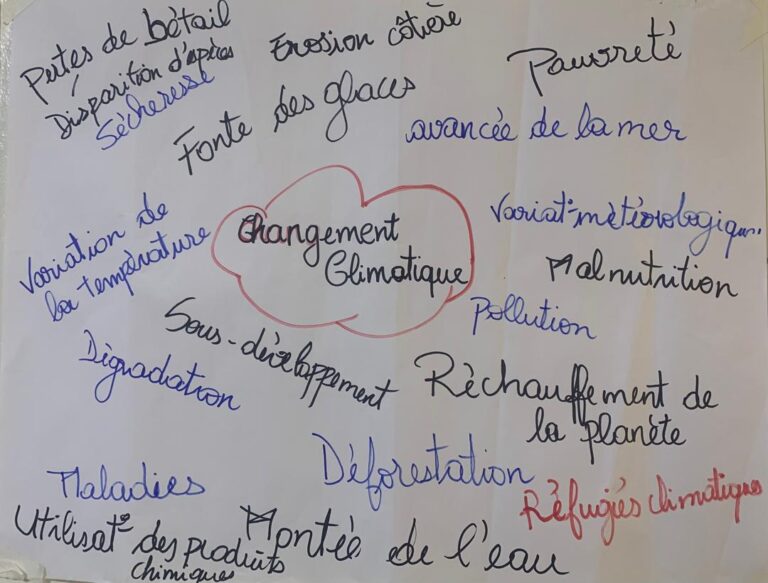 Pertes de bétail
Disparition d'espèces
Sécheresse
Erosion côtière
Pauvreté
Fonte des glaces
avancée de la mer
Variation de
la température
Changement
Climatique
Variat° météorologiques
Malnutrition
Pollution
Sous-développement
Dégradation
Réchauffement de
la planète
Déforestation
Maladies
Réfugiés climatiques
Utilisat° des produits
chimiques
Montée de l'eau